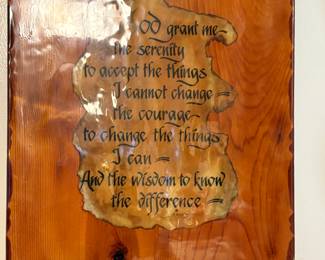 GOD grant me~
the serenity
to accept the things
I cannot change =
the courage~
to change the things
I can =
And the wisdom to know
the difference =